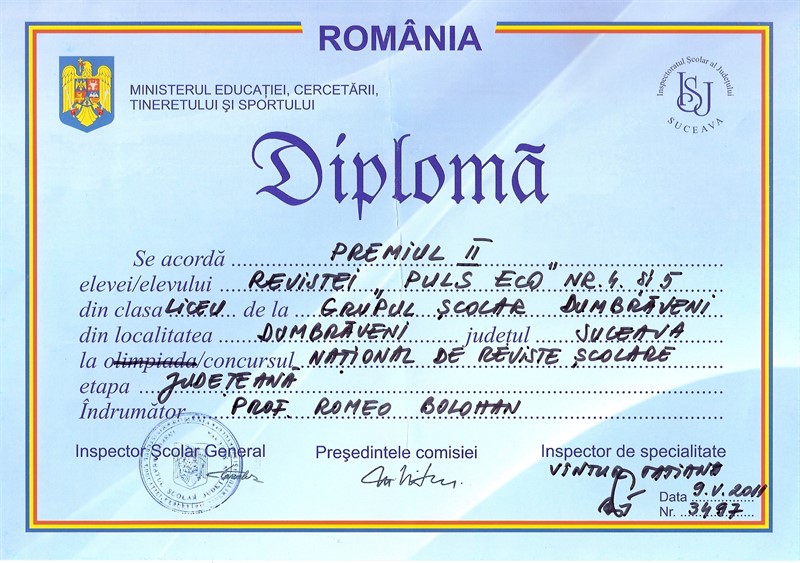 ROMÂNIA
MINISTERUL EDUCAȚIEI, CERCETĂRII,
TINERETULUI ȘI SPORTULUI
Inspectoratul Școlar al Județului
ISJ
SUCEAVA
Diplomă
Se acordă PREMIUL II
elevei/elevului REVISTEI „PULS ECO" NR. 4 și 5
din clasa LICEU de la GRUPUL ȘCOLAR DUMBRĂVENI
din localitatea DUMBRĂVENI județul SUCEAVA
la olimpiada/concursul NAȚIONAL DE REVISTE ȘCOLARE
etapa JUDEȚEANĂ
Îndrumător PROF. ROMEO BOLOHAN
Inspector Școlar General Președintele comisiei Inspector de specialitate
TATIANA
Data 9.V.2011
Nr. 3497